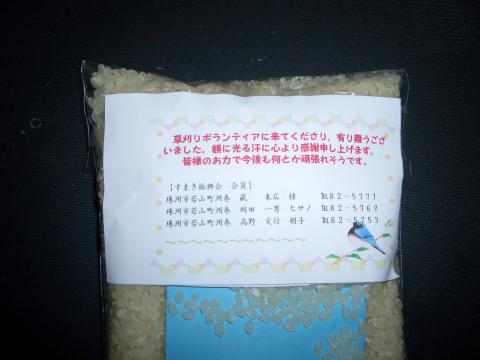 草刈りボランティアに来てくださり、有り難うござ
いました。額に光る汗に心より感謝申し上げます。
皆様のお力で今後も何とか頑張れそうです。
【すまき振興会 会員】
珠洲市若山町洲巻 蔵 末広・緑 ℡82-5771
珠洲市若山町洲巻 岡田 一男・ヒサノ ℡82-5769
珠洲市若山町洲巻 高野 定行・朋子 ℡82-5753